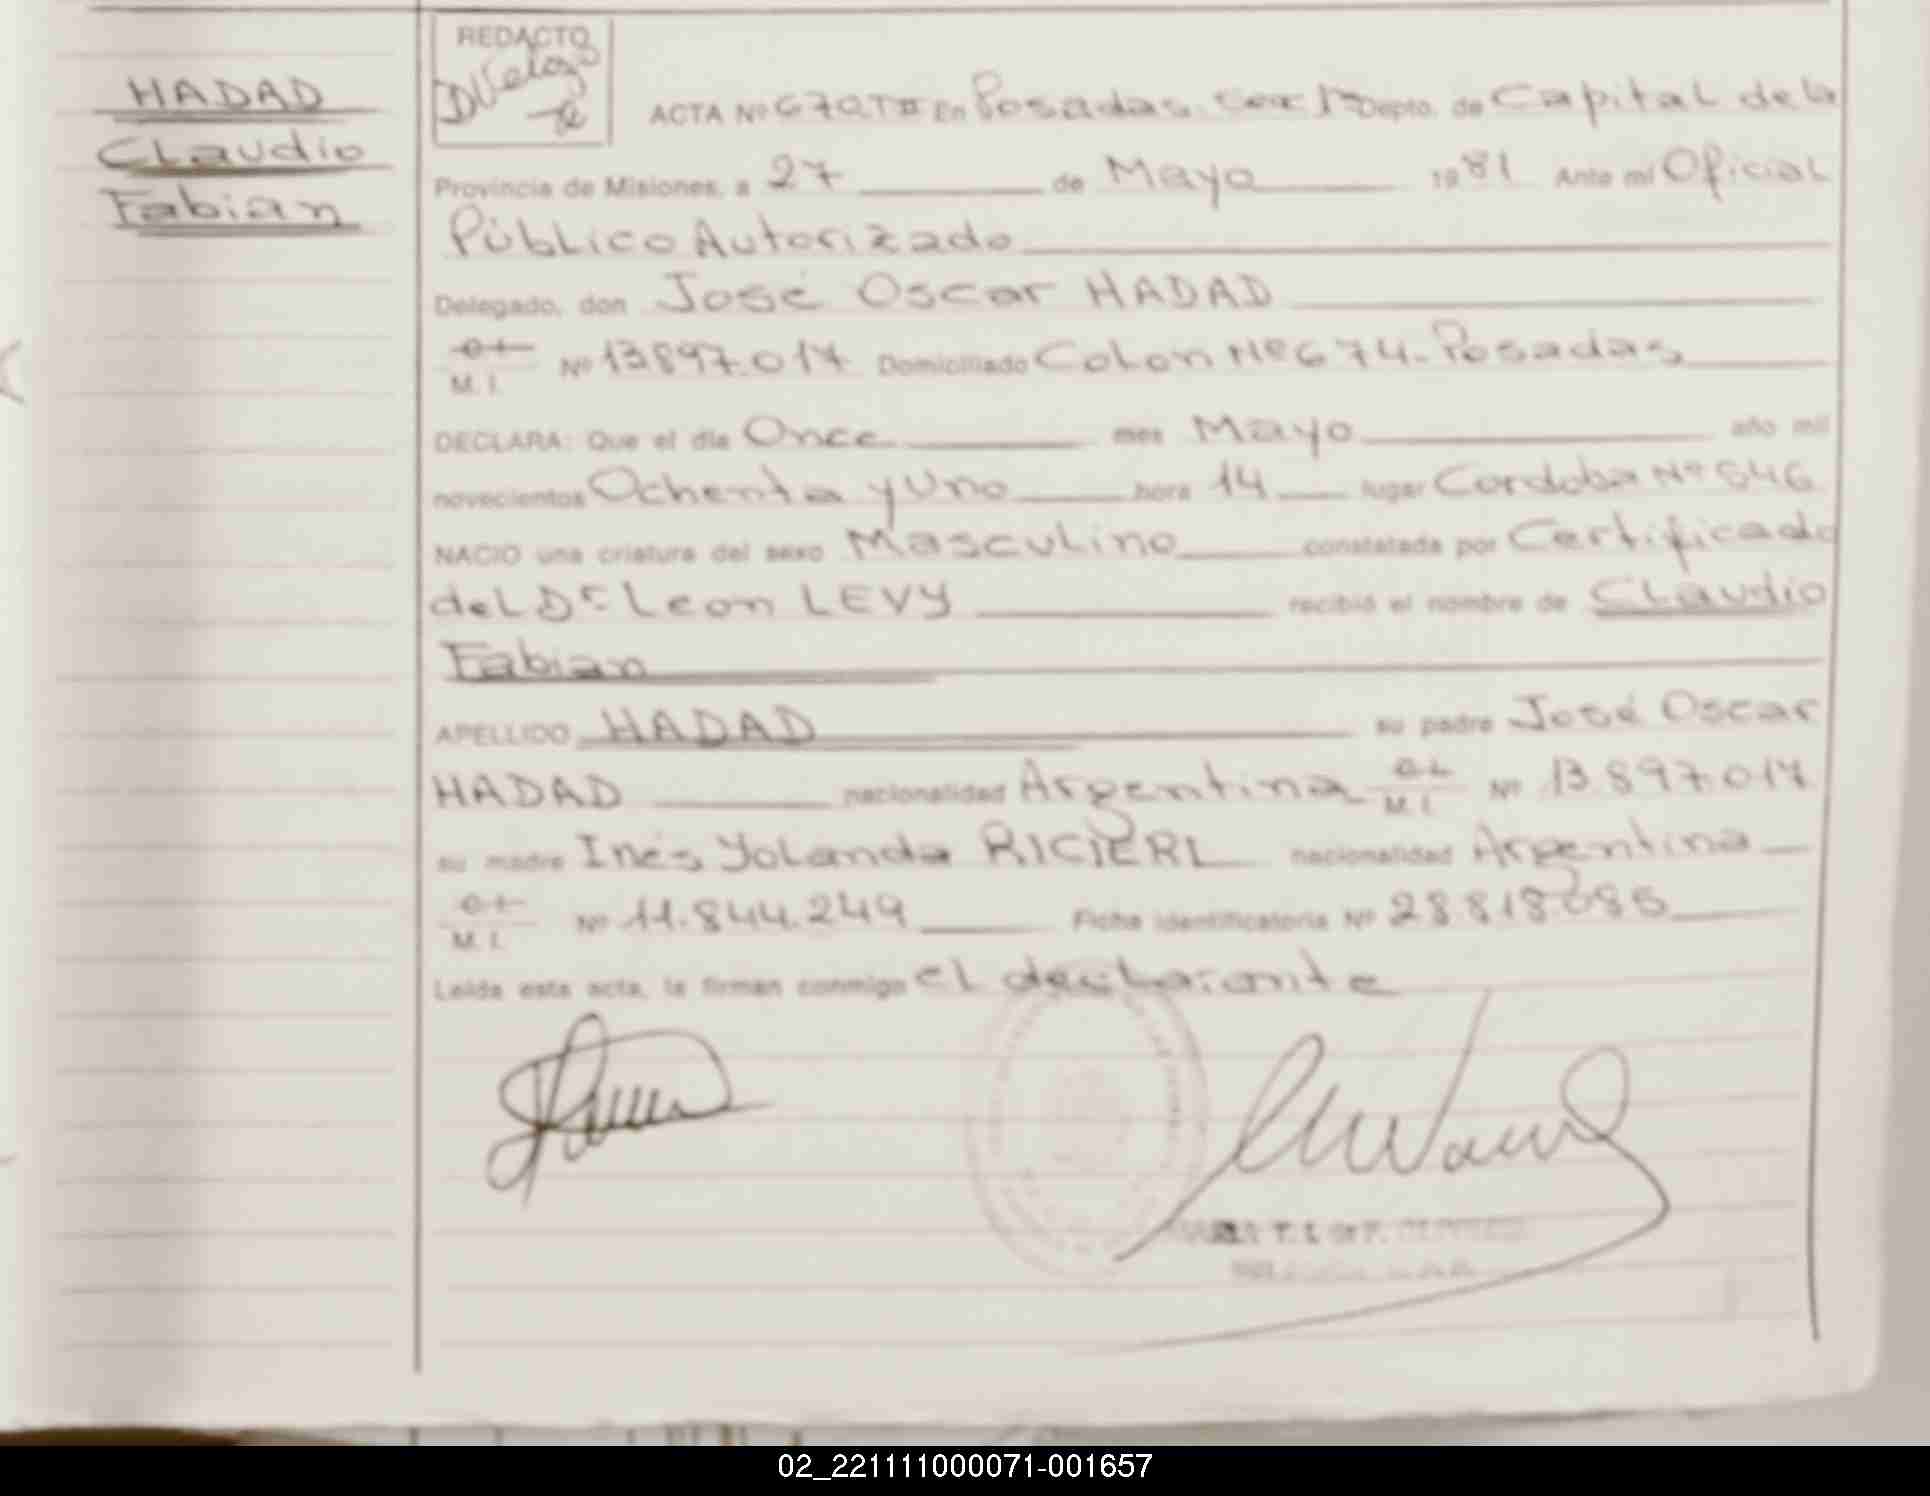 HADAD
Claudio
Fabian
REDACTO
ACTA Nº 670 T II En Posadas, Sec 1ª Depto. de Capital de la
Provincia de Misiones, a 27 de Mayo 1981 Ante mí Oficial
Público Autorizado
Delegado, don José Oscar HADAD
M. I. Nº 13.897.017 Domiciliado Colon Nº 674 - Posadas
DECLARA: Que el día Once mes Mayo año mil
novecientos Ochenta y Uno hora 14 lugar Cordoba Nº 546
NACIO una criatura del sexo Masculino constatada por Certificado
del Dr. Leon LEVY recibió el nombre de Claudio
Fabian
APELLIDO HADAD su padre José Oscar
HADAD nacionalidad Argentina M. I. Nº 13.897.017
su madre Inés Yolanda RICIERI nacionalidad Argentina
M. I. Nº 11.844.249 Ficha identificatoria Nº 28.818.085
Leída esta acta, la firman conmigo el declarante
02_221111000071-001657